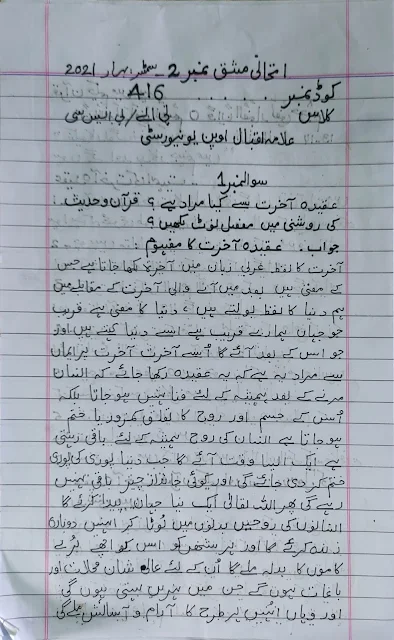 امتحانی مشق نمبر 2 ـ سمسٹر بہار 2021
کوڈ نمبر ...... 416
کلاس بی اے/ بی ایس سی
علامہ اقبال اوپن یونیورسٹی
سوال نمبر 1
عقیدہ آخرت سے کیا مراد ہے ؟ قرآن و حدیث
کی روشنی میں مفصل نوٹ لکھیں ؟
جواب . عقیدہ آخرت کا مفہوم :
آخرت کا لفظ عربی زبان میں آخرۃ لکھا جاتا ہے جس
کے معنی ہیں بعد میں آنے والی آخرت کے مقابلے میں
ہم دنیا کا لفظ بولتے ہیں ، دنیا کا معنی ہے قریب
جو جہاں ہمارے قریب ہے اسے دنیا کہتے ہیں اور
جو اس کے بعد آئے گا اُسے آخرت آخرت پر ایمان
سے مراد یہ ہے کہ یہ عقیدہ رکھا جائے کہ انسان
مرنے کے بعد ہمیشہ کے لئے فنا نہیں ہو جاتا بلکہ
اُس کے جسم اور روح کا تعلق کمزور یا ختم
ہو جاتا ہے انسان کی روح ہمیشہ کے لئے باقی رہتی
ہے ایک ایسا وقت آئے گا جب دنیا پوری کی پوری
ختم کر دی جائے گی اور کوئی جاندار چیز باقی نہیں
رہے گی پھر اللہ تعالیٰ ایک نیا جہاں پیدا کرئے گا
انسانوں کی روحیں بدنوں میں لوٹا کر انہیں دوبارہ
زندہ کرئے گا اور ہر شخص کو اس کو اچھے بُرے
کاموں کا بدلہ ملے گا اُن کے لئے عالی شان محلات اور
باغات ہوں گے جن میں نہریں بہتی ہوں گی
اور وہاں انہیں ہر طرح کا آرام و آسائش ملے گی